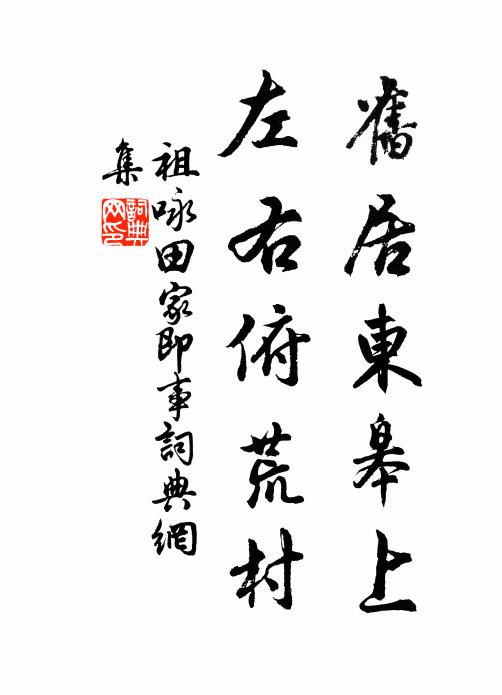 舊居東皋上
左右俯荒村
祖咏田家即事詞典網
集
詞典網印